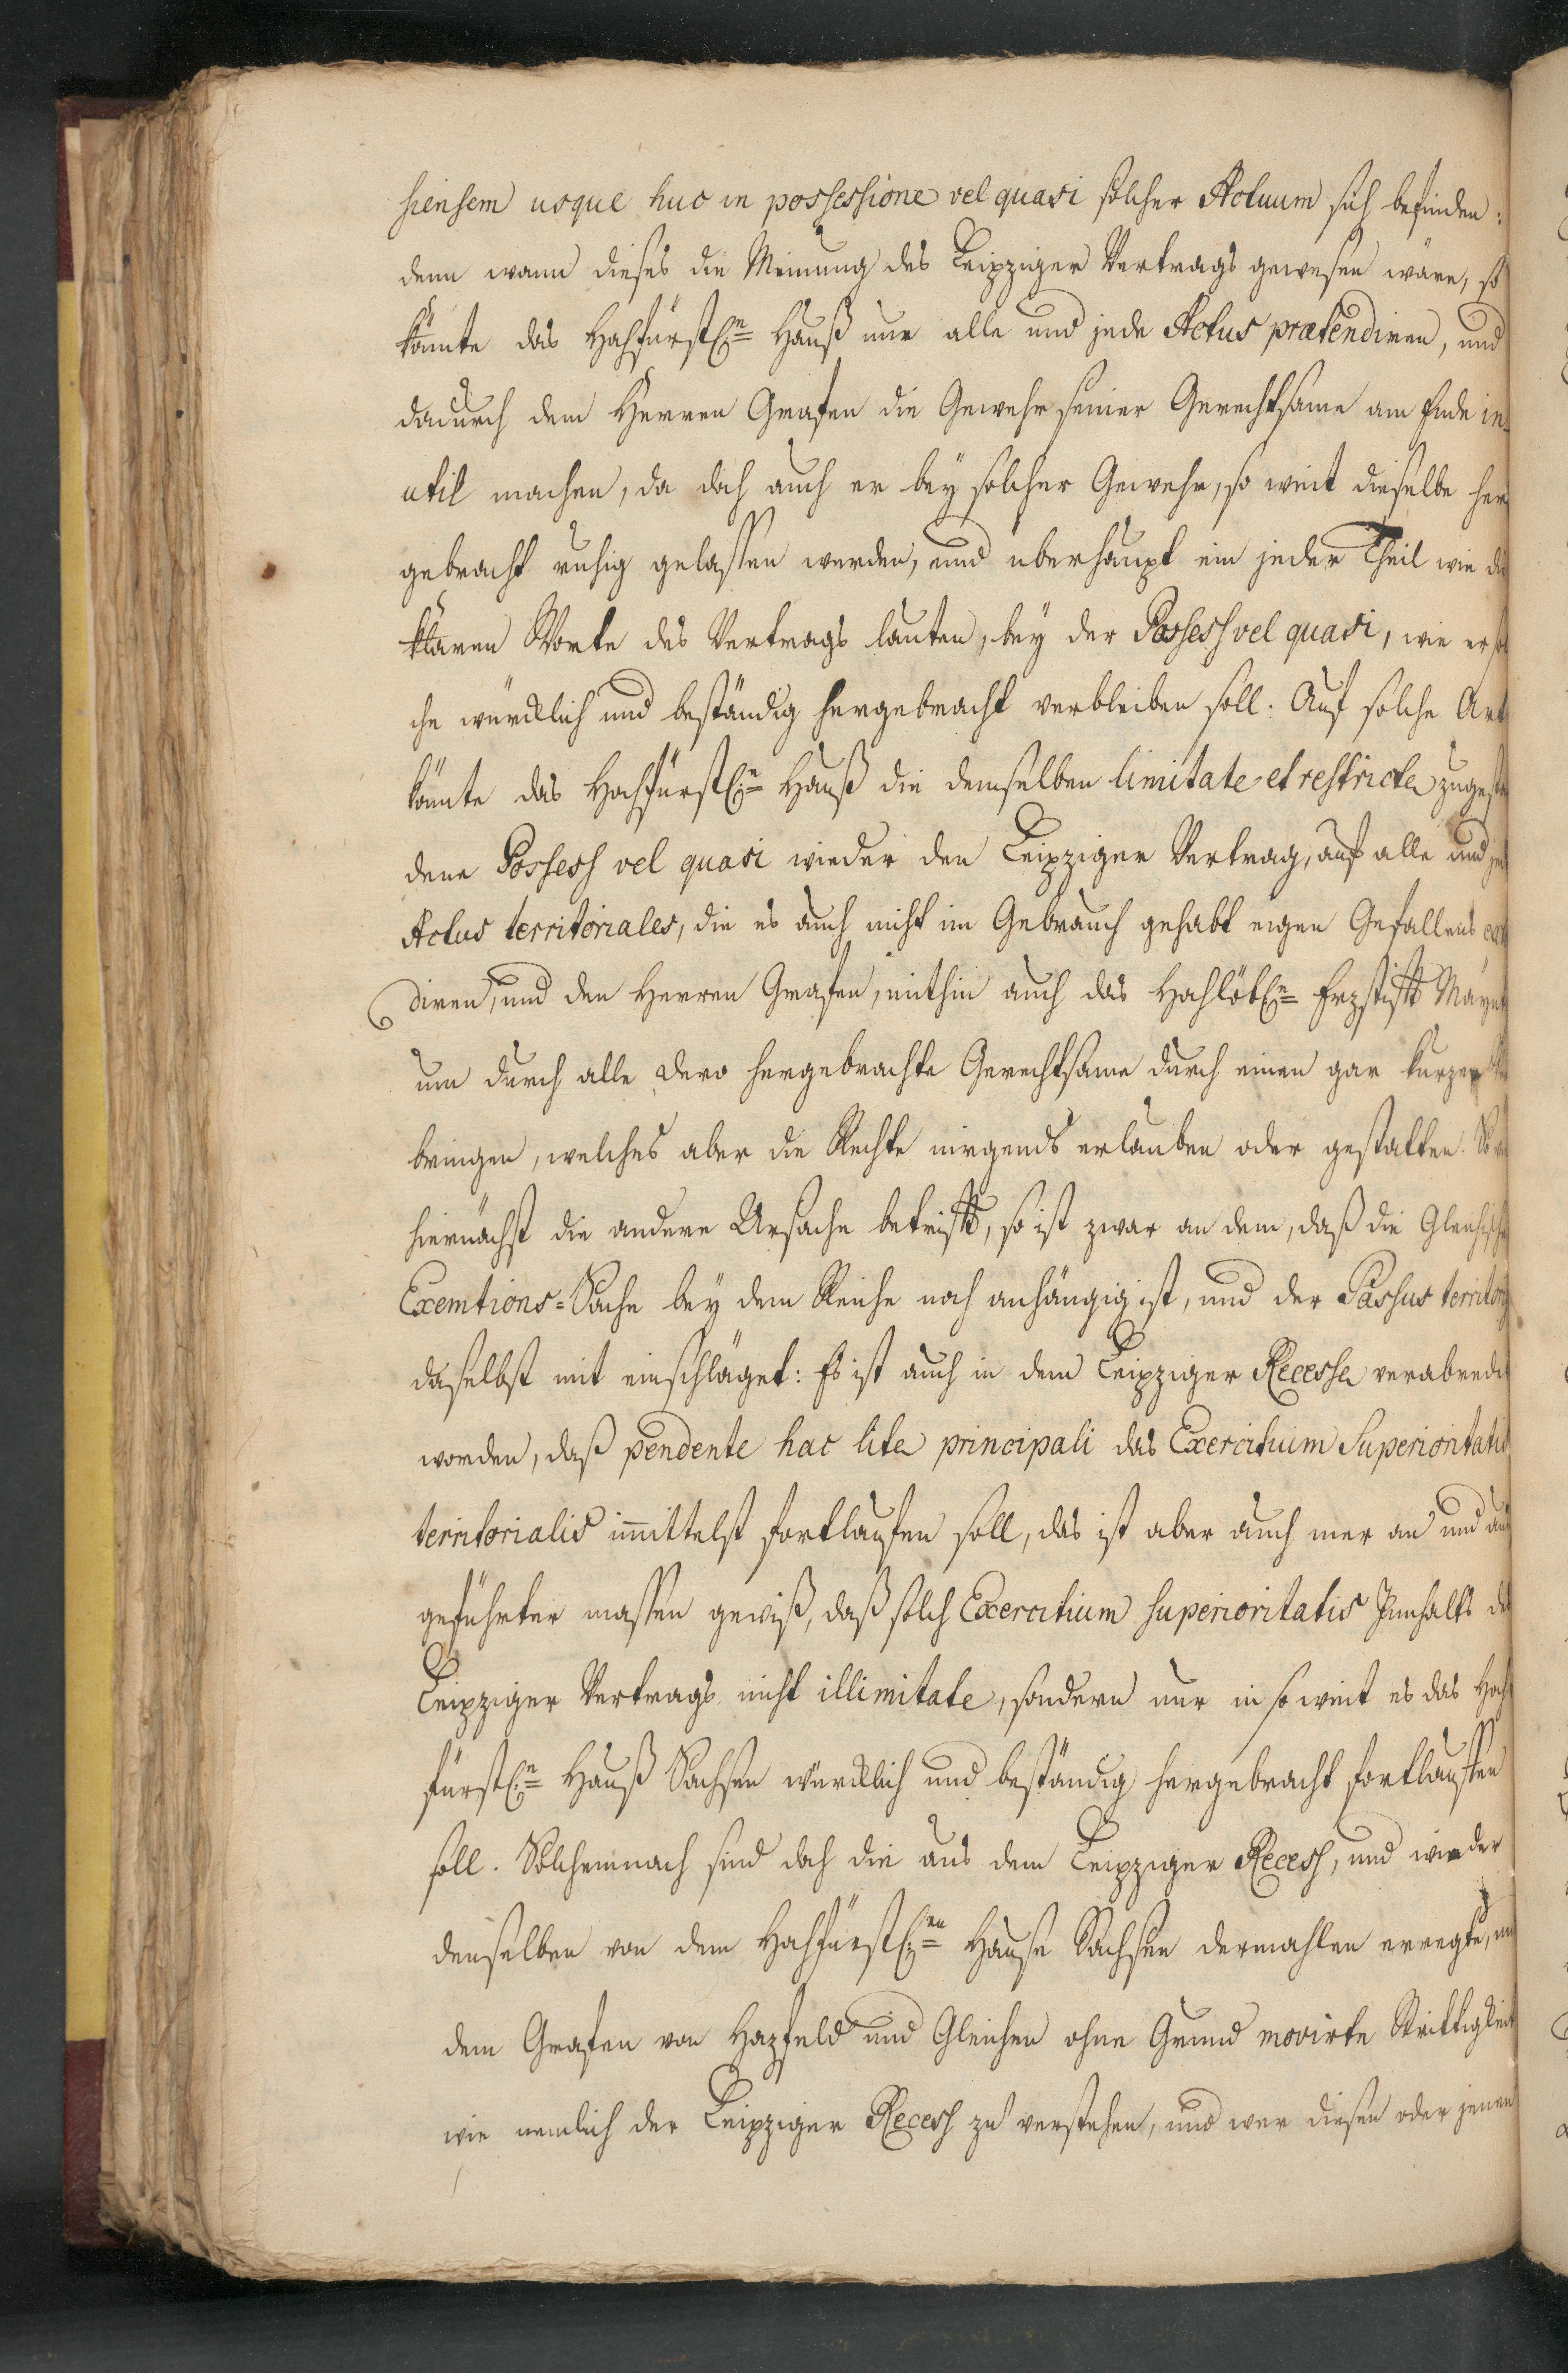 siensem usque huc in possessione vel quasi solcher Actuum sich befinden:
denn wann dieses die Meinung des Leipziger Vertrags gewesen wäre, so
könnte das Hochfürstl:n Hauß nur alle und jede Actus prætendiren, und
dadurch dem Herren Grafen die Gewehr seiner Gerechtsame am Ende in-
util machen, da doch auch er bey solcher Gewehr, so weit dieselbe her
gebracht ruhig gelassen werden, und überhaupt ein jeder Theil wie die
klaren Worte des Vertrags lauten, bey der Possess vel quasi, wie er sol
che würcklich und beständig hergebracht verbleiben soll. Auf solche Art
könte das Hochfürstl:n Hauß die demselben limitate et restricte zugesta
dene Possess vel quasi wieder den Leipziger Vertrag, auf alle und jede
Actus territoriales, die es auch nicht im Gebrauch gehabt eigen Gefallens
diren, und den Herren Grafen, mithin auch das Hochlöbl:n Erzstifft Mäyntz
um durch alle dero hergebrachte Gerechtsame durch einen gar kurzen
bringen, welches aber die Rechte nirgends erlauben oder gestatten. So viel
hiernächst die andere Ursache betrifft, so ist zwar an dem, daß die Gleichische
Exemtions-Sache bey dem Reiche noch anhängig ist, und der Passus territorij
daselbst mit einschläget: Es ist auch in dem Leipziger Recesse verabredet
worden, daß pendente hac lite principali das Exercitium Superioritatis
territorialis immittelst fortlaufen soll, das ist aber auch mer an und aus
geführter massen gewiß, daß solch Exercitium superioritatis Innhalts des
Leipziger Vertrags nicht illimitate, sondern nur in so weit es das Hoch
fürstl:n Hauß Sachsen würcklich und beständig hergebracht fortlauffen
soll. Solchemnach sind doch die aus dem Leipziger Recess, und wieder
denselben von dem Hochfürstl:en Hause Sachsen dermahlen erregte, und
dem Grafen von Hazfeld und Gleichen ohne Grund movirte Strittigkeit
wie nemlich der Leipziger Recess zu verstehen, und wer diesen oder jenen